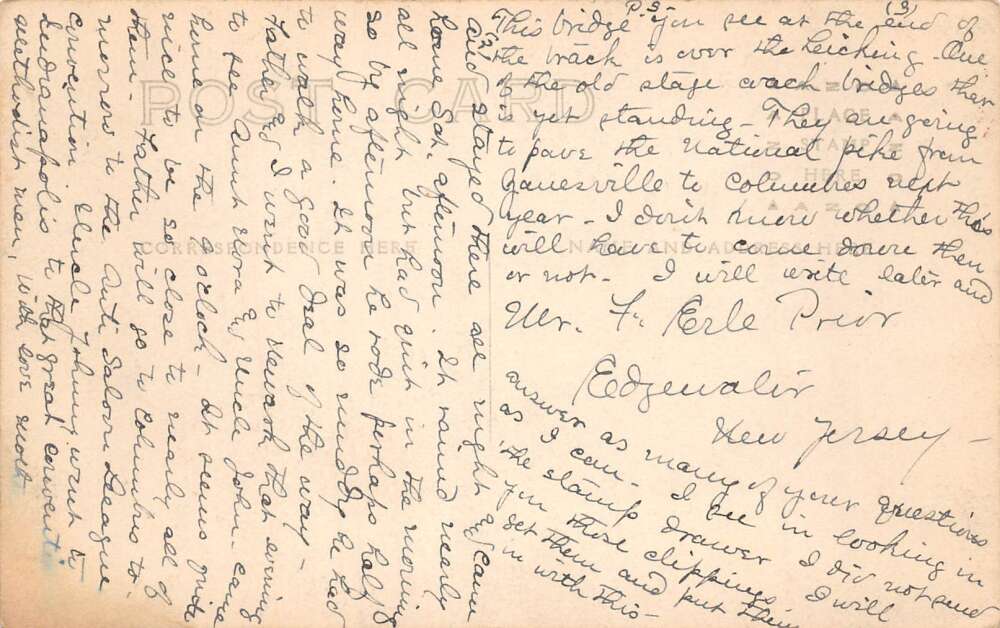 POST CARD
CORRESPONDENCE HERE
NAME AND ADDRESS HERE
PLACE
STAMP
HERE
(2)
and stayed there all night & came
home Sat. afternoon. It rained nearly
all night but had quit in the morning
so by afternoon he rode perhaps half
way home. It was so muddy he had
to walk a good deal of the way –
Father & I went to Newark that evening
to see Aunt Nora & Uncle John – came
home on the 9 oclock – It seems quite
nice to be so close to nearly all of
them – Father will go to Columbus to-
morrow to the Anti Saloon League
convention Uncle Johnny went to
Indianapolis to that great convention
methodist men, With love mother
P.S. (3)
This bridge you see at the end of
the track is over the Leiching – One
of the old stage coach bridges that
is yet standing – They are going
to pave the national pike from
Zanesville to Columbus next
year – I don't know whether this
will have to come down then
or not – I will write later and
answer as many of your questions
as I can. I see in looking in
the stamp drawer I did not send
you those clippings I will
get them and put them
in with this –
Mr. F. Erle Prior
Edgewater
New Jersey –